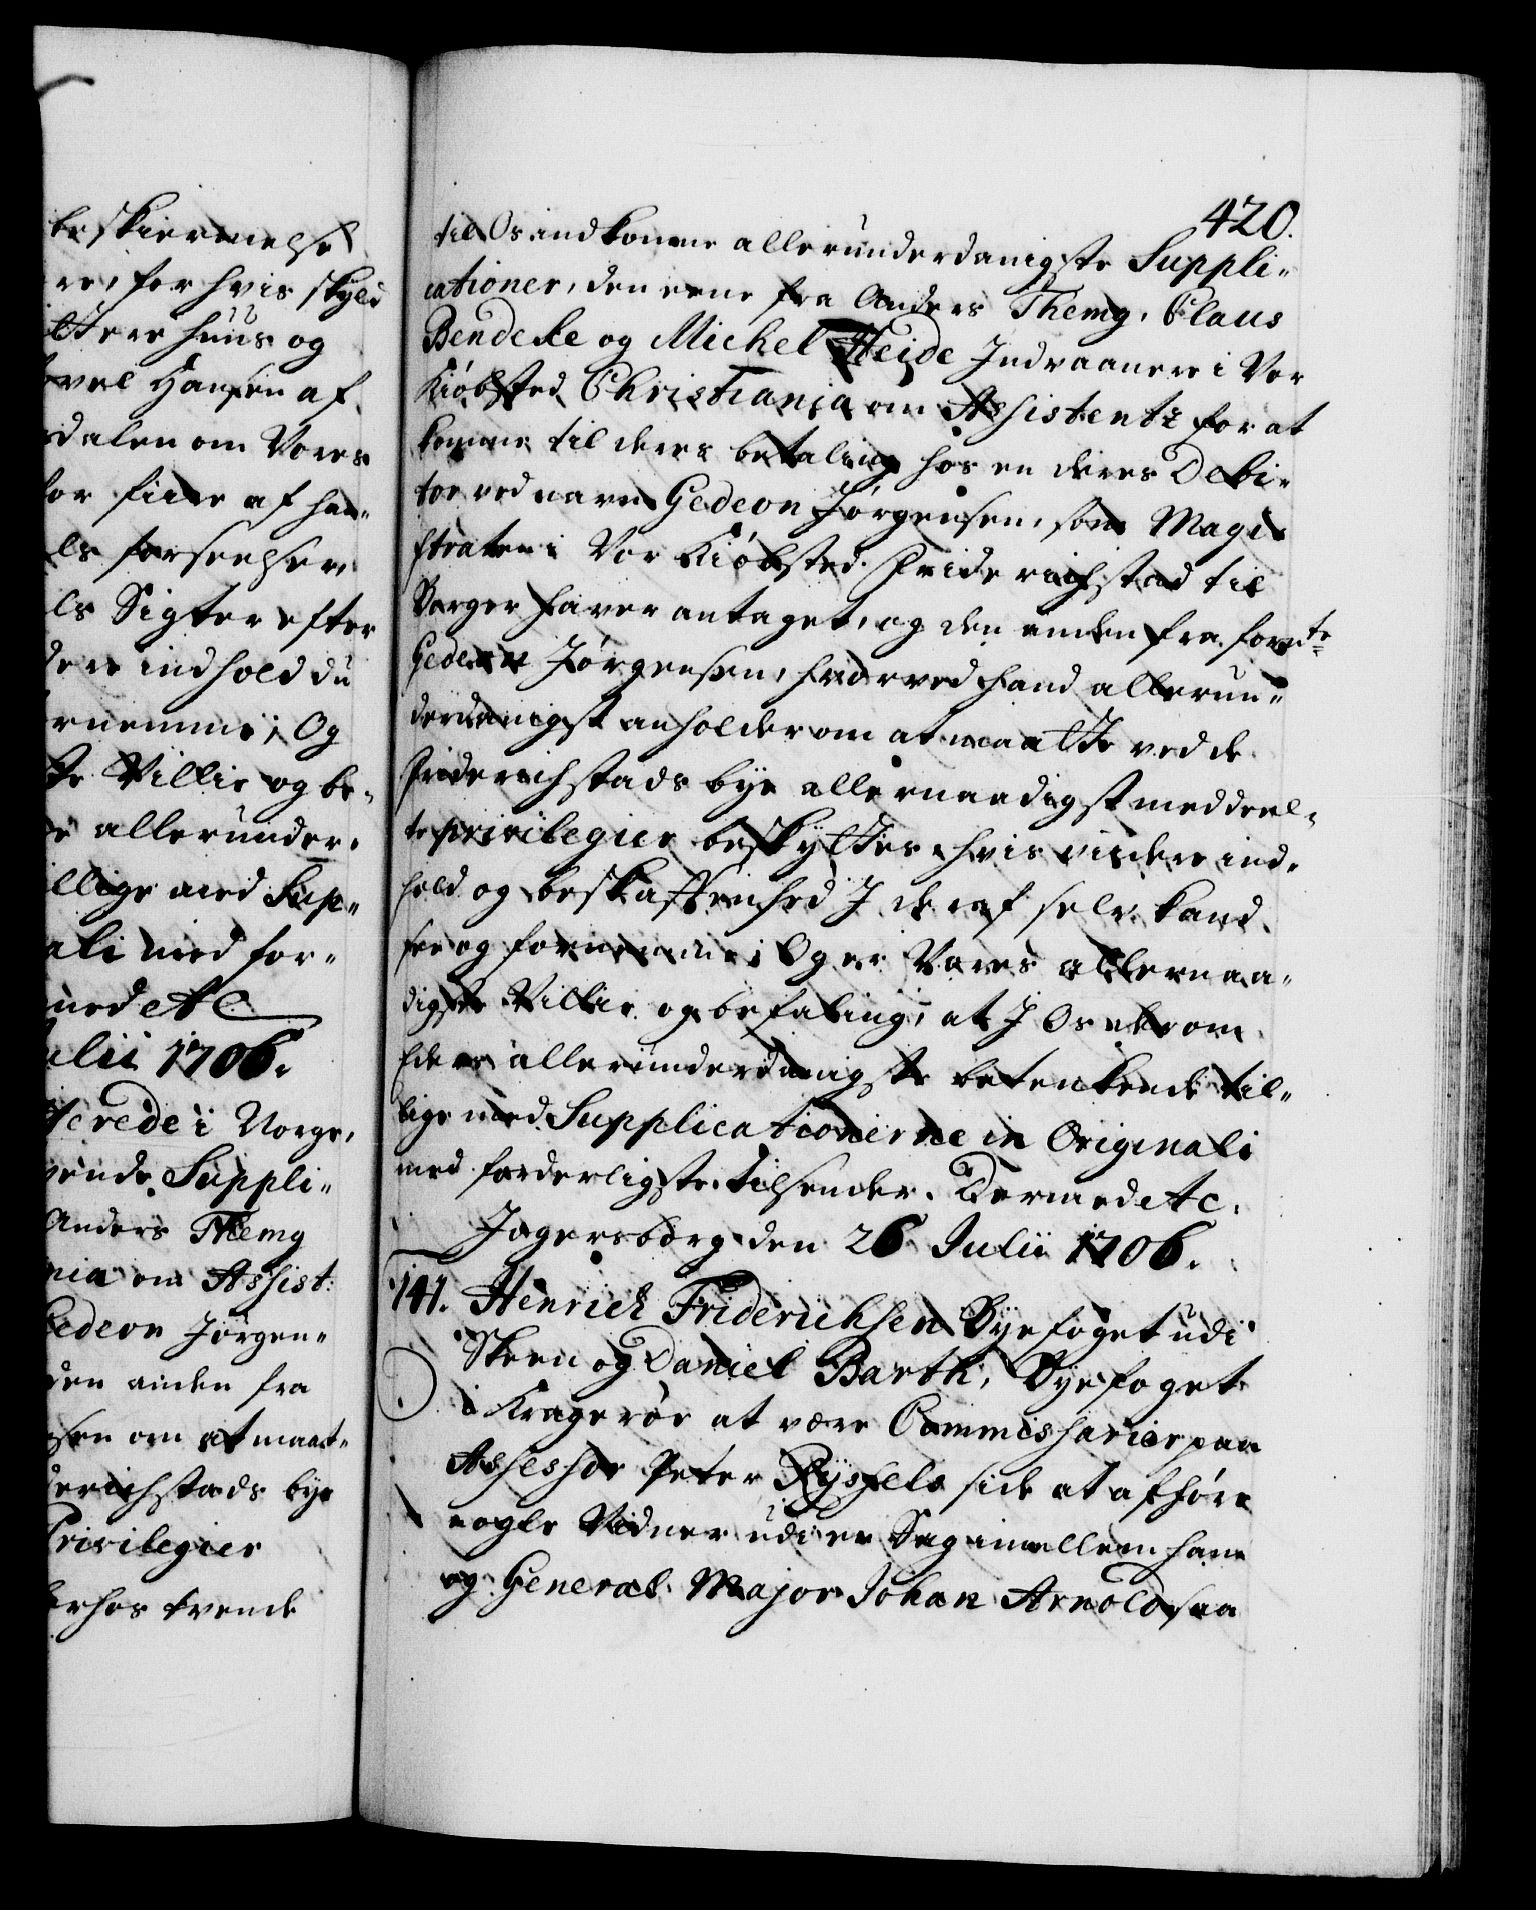 beskiermelse
re, for hvis skyld
ttere huus og
vel Hansen af
dalen om Vores
for sine af han-
ls forseelser
ls Sigter efter
dere indhold du
rnemme; Og
te Villie og be-
e allerunder-
llige med Sup-
ali med for-
med etc
ulii 1706.
terede i Norge,
vende Suppli-
Anders Themg
nia om Assist:
Gedeon Jørgen-
den anden fra
sen om at maat-
derichstads bye
Privilegier
erhos tvende
420.
til Os indkomne allerunderdanigste Suppli-
cationer, den eene fra Anders Themg, Claus
Bendeke og Michel Heide Indvaanere i Vor
Kiøbsted Christiania om Assistentz for at
komme til deres betaling hos en deres Debi-
tor ved navn Gedeon Jørgensen, som Magi-
straten i Vor Kiøbsted Friderichstad til
Borger haver antaget, og den anden fra forn:te
Gedeon Jørgensen, hvorved hand allerun-
derdanigst anholder om at maatte ved de
Friderichstads bye allernaadigst meddeel-
te privilegier beskyttes, hvis videre ind-
hold og beskaffenhed I deraf selv kand
see og fornemme; Og er Vores allernaa-
digste Villie og befaling, at I Os derom
Eders allerunderdanigste betenkende til-
lige med Supplicationerne in Originali
med forderligste tilsender. Dermed etc.
Jagersborg den 26 Julii 1706.
141. Henrich Friderichsen Byefoget udi
Skeen og Daniel Barth, Byefoget
i Kragerøe at være Commissarier paa
Assessor Peter Rysfels side at afhøre
nogle Vidner udi en Sag imellem ham
og General Major Johan Arnold saa